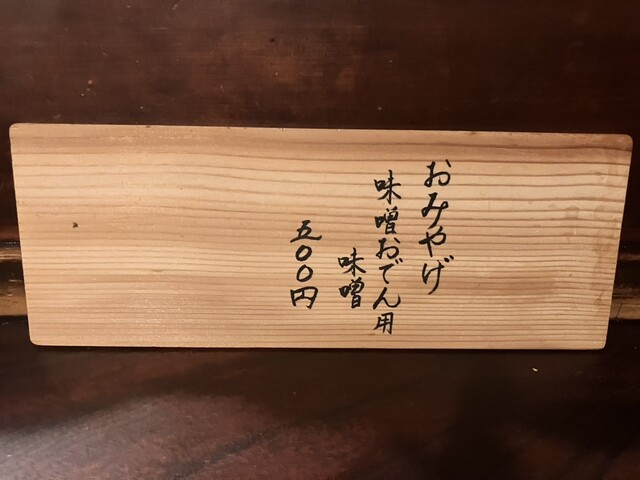 おみやげ
味噌おでん用
味噌
五〇〇円